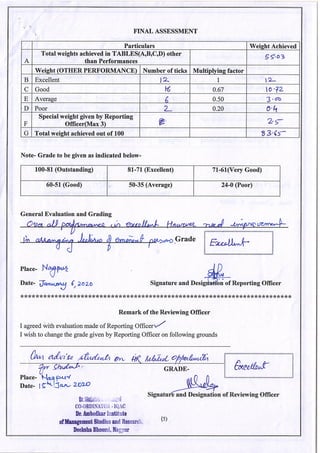 FINAL ASSESSMENT
Particulars Weight Achieved
A Total weights achieved in TABLES(A,B,C,D) other than Performances 55.03
Weight (OTHER PERFORMANCE) Number of ticks Multiplying factor
B Excellent 12 1 12
C Good 16 0.67 10.72
E Average 6 0.50 3.00
D Poor 2 0.20 0.4
F Special weight given by Reporting Officer(Max 3) 2.5
G Total weight achieved out of 100 83.65
Note- Grade to be given as indicated below-
100-81 (Outstanding) 81-71 (Excellent) 71-61(Very Good)
60-51 (Good) 50-35 (Average) 24-0 (Poor)
General Evaluation and Grading
Over all performance is excellent. However need improvement
in arranging lectures of eminent persons Grade Excellent
Place- Nagpur
Date- January 6, 2020 Signature and Designation of Reporting Officer
Remark of the Reviewing Officer
I agreed with evaluation made of Reporting Officer ✓
I wish to change the grade given by Reporting Officer on following grounds
advise students on HR related opportunities
for students. GRADE- Excellent
Place- Nagpur
Date- 15th Jan 2020
Signature and Designation of Reviewing Officer
CO-ORDINATOR - IQAC
Dr. Ambedkar Institute
of Management Studies and Research
Deeksha Bhoomi, Nagpur
(5)